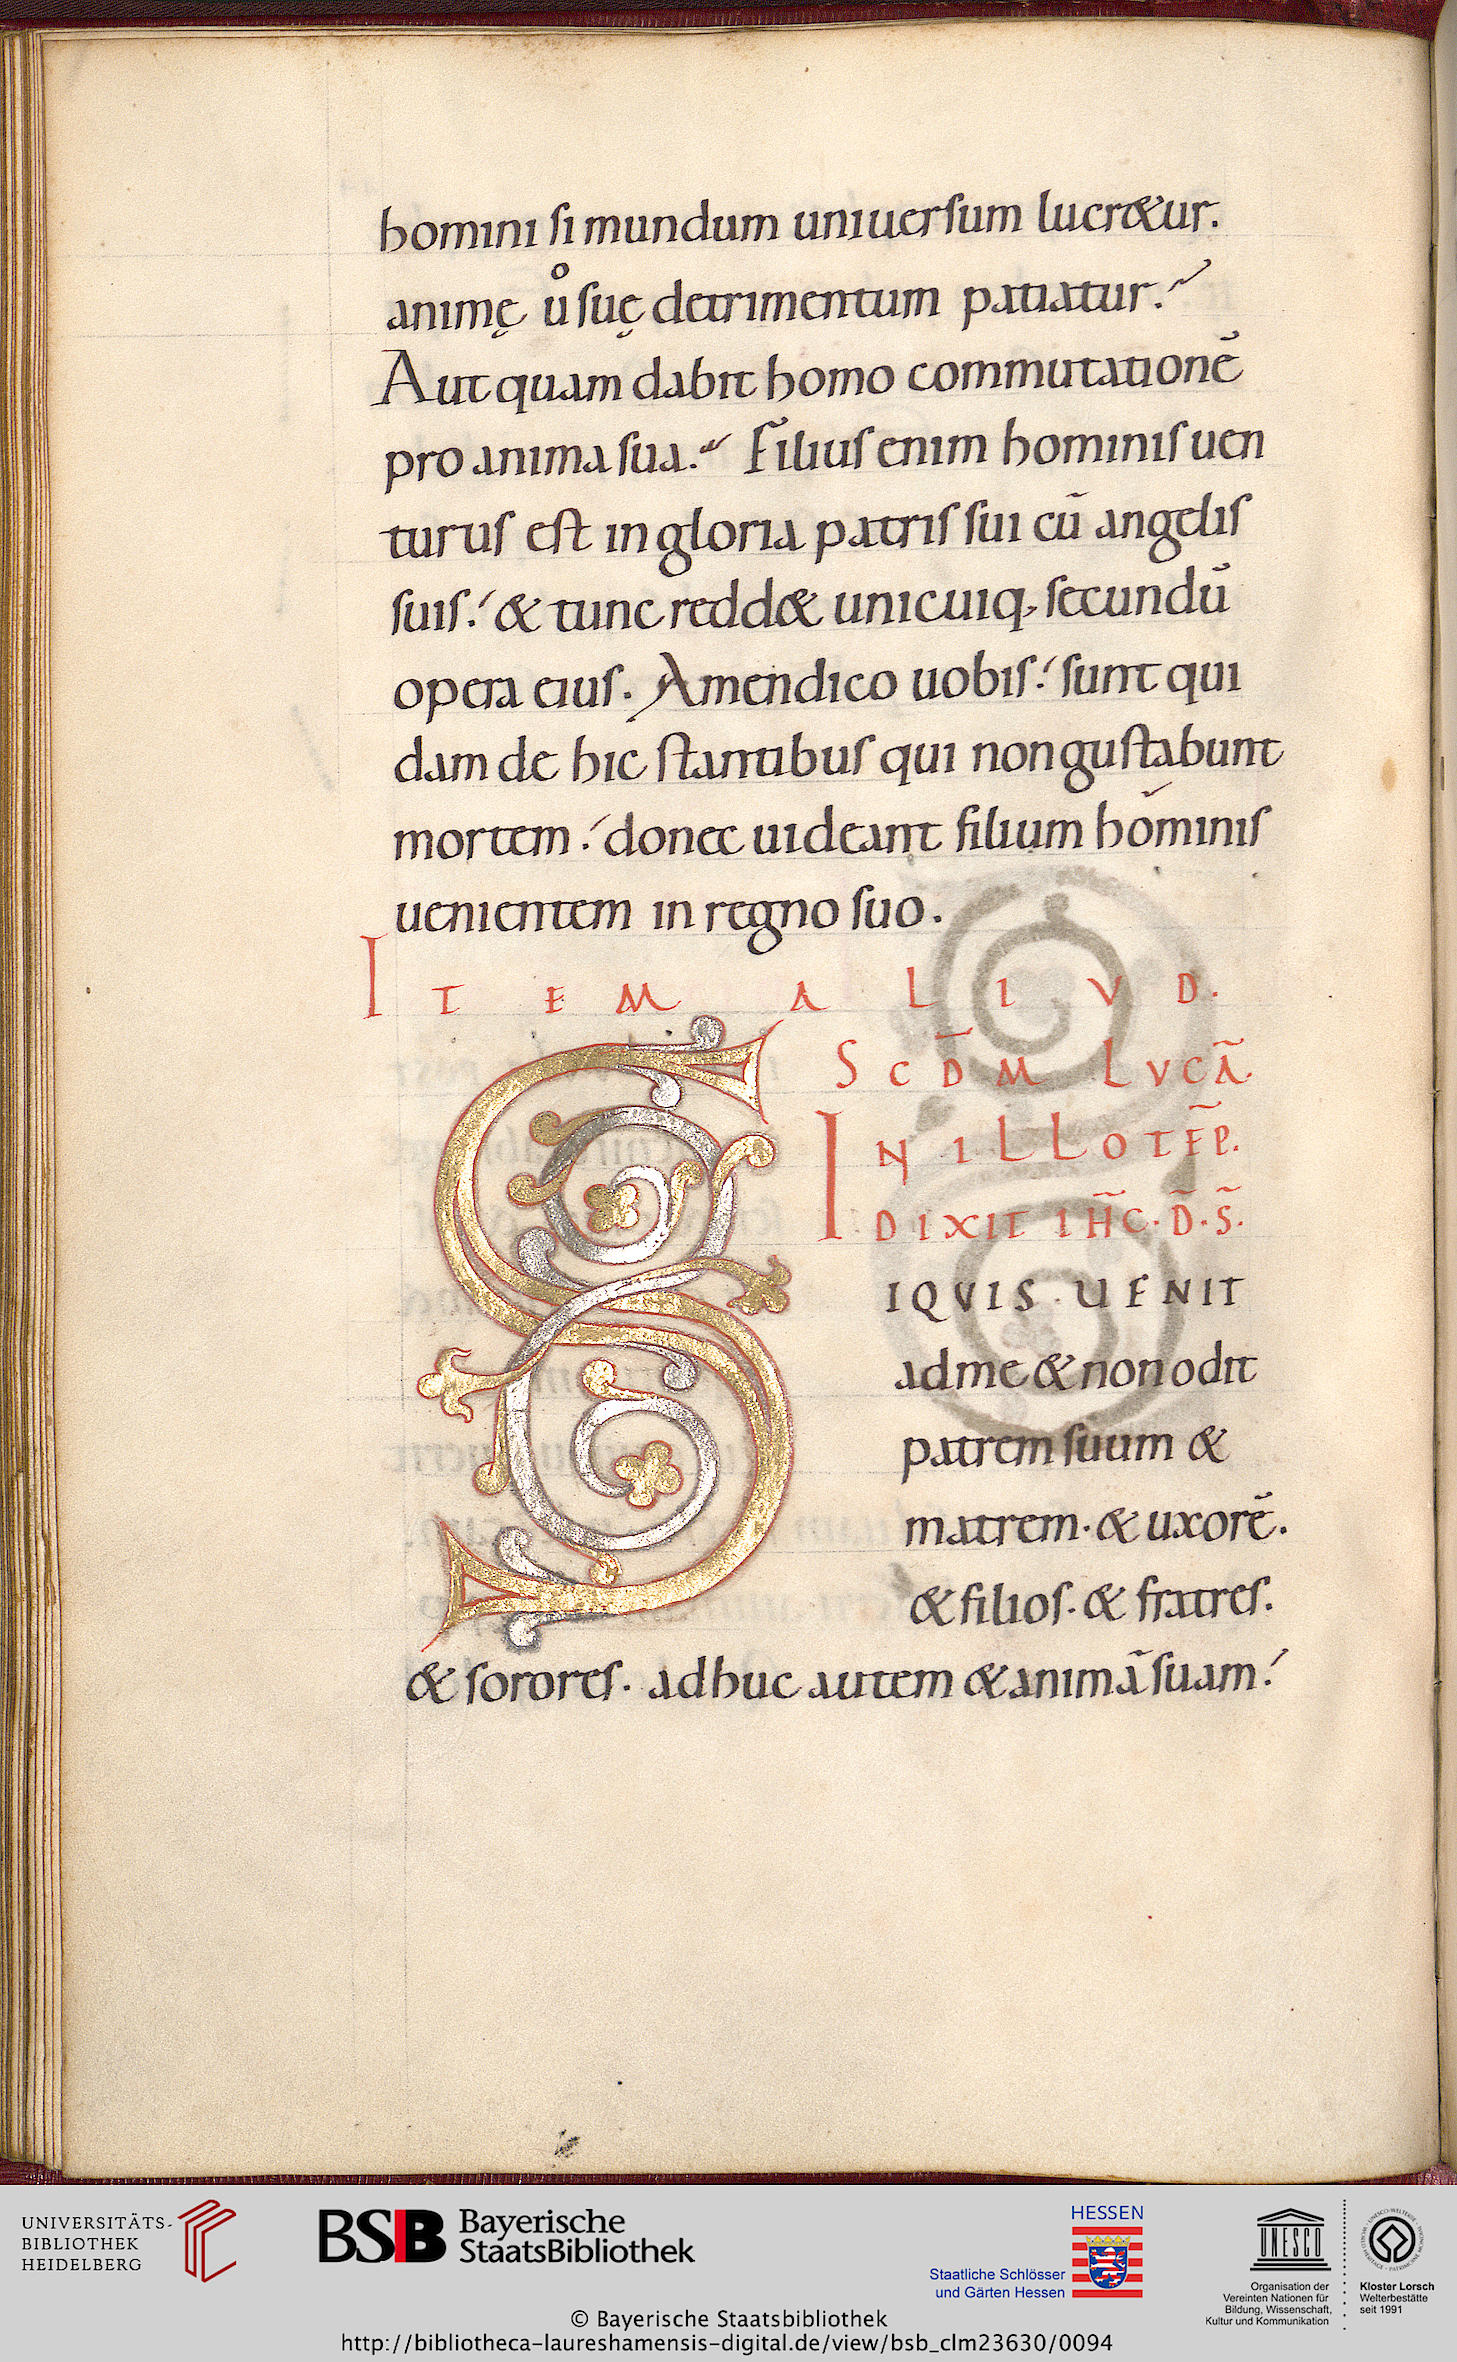 homini si mundum uniuersum lucr&ur.
animę ů suę detrimentum patiatur.
Aut quam dabit homo commutationē
pro anima sua. Filius enim hominis uen
turus est in gloria patris sui cū angelis
suis. & tunc redd& unicuiq; secundū
opera eius. Amen dico uobis. sunt qui
dam de hic stantibus qui non gustabunt
mortem. donec uideant filium hominis
uenientem in regno suo.
ITEM ALIVD.
S
SCD̄M LVCĀ
IN ILLO TĒP.
DIXIT IH̄C. D̄. S̄.
IQVIS UENIT
ad me & non odit
patrem suum &
matrem. & uxorē.
& filios. & fratres.
& sorores. adhuc autem & animā suam.
UNIVERSITÄTS-
BIBLIOTHEK
HEIDELBERG
BSB Bayerische
StaatsBibliothek
HESSEN
Staatliche Schlösser
und Gärten Hessen
UNESCO
Organisation der
Vereinten Nationen für
Bildung, Wissenschaft,
Kultur und Kommunikation
Kloster Lorsch
Welterbestätte
seit 1991
© Bayerische Staatsbibliothek
http://bibliotheca-laureshamensis-digital.de/view/bsb_clm23630/0094